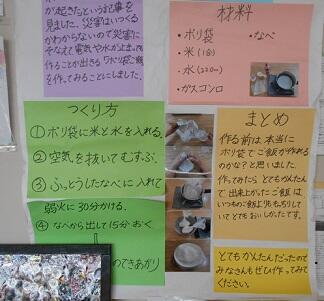 が起きたという記事を
見ました。災害はいつくる
かわからないので災害に
そなえて電気や水が止まっても
作ることが出きる
を作ってみることにしました。
材料
・ポリ袋
・なべ
・米(1合)
・水(220ml)
・ガスコンロ
つくり方
①ポリ袋に米と水を入れる。
②空気を抜いてむすぶ。
③ふっとうしたなべに入れて
弱火に30分かける。
④なべから出して15分おく
のできあがり
まとめ
作る前は本当に
ポリ袋でご飯が作れる
のかな?と思いました。
作ってみたら、とてもかんたん
で出来上がったご飯は
いつものご飯よりもっちりして
いてとてもおいしかったです。
とてもかんたんだったので
みなさんもぜひ作ってみて
ください。